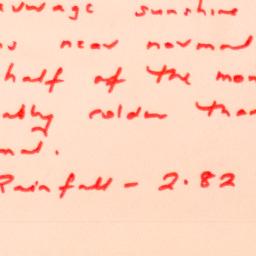 average sunshine
near normal
half of the mon
ably colder than
mal.
Rainfall - 2.82